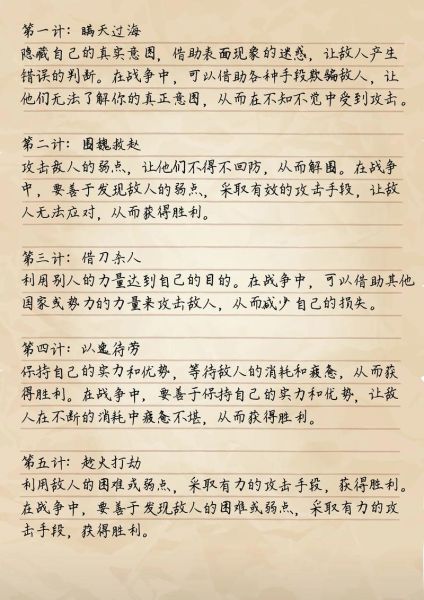 第一计：瞒天过海
隐藏自己的真实意图，借助表面现象的迷惑，让敌人产生
错误的判断。在战争中，可以借助各种手段欺骗敌人，让
他们无法了解你的真正意图，从而在不知不觉中受到攻击。
第二计：围魏救赵
攻击敌人的弱点，让他们不得不回防，从而解围。在战争
中，要善于发现敌人的弱点，采取有效的攻击手段，让敌
人无法应对，从而获得胜利。
第三计：借刀杀人
利用别人的力量达到自己的目的。在战争中，可以借助其他
国家或势力的力量来攻击敌人，从而减少自己的损失。
第四计：以逸待劳
保持自己的实力和优势，等待敌人的消耗和疲惫，从而获
得胜利。在战争中，要善于保持自己的实力和优势，让敌
人在不断的消耗中疲惫不堪，从而获得胜利。
第五计：趁火打劫
利用敌人的困难或弱点，采取有力的攻击手段，获得胜利。
在战争中，要善于发现敌人的困难或弱点，采取有力的攻
击手段，获得胜利。